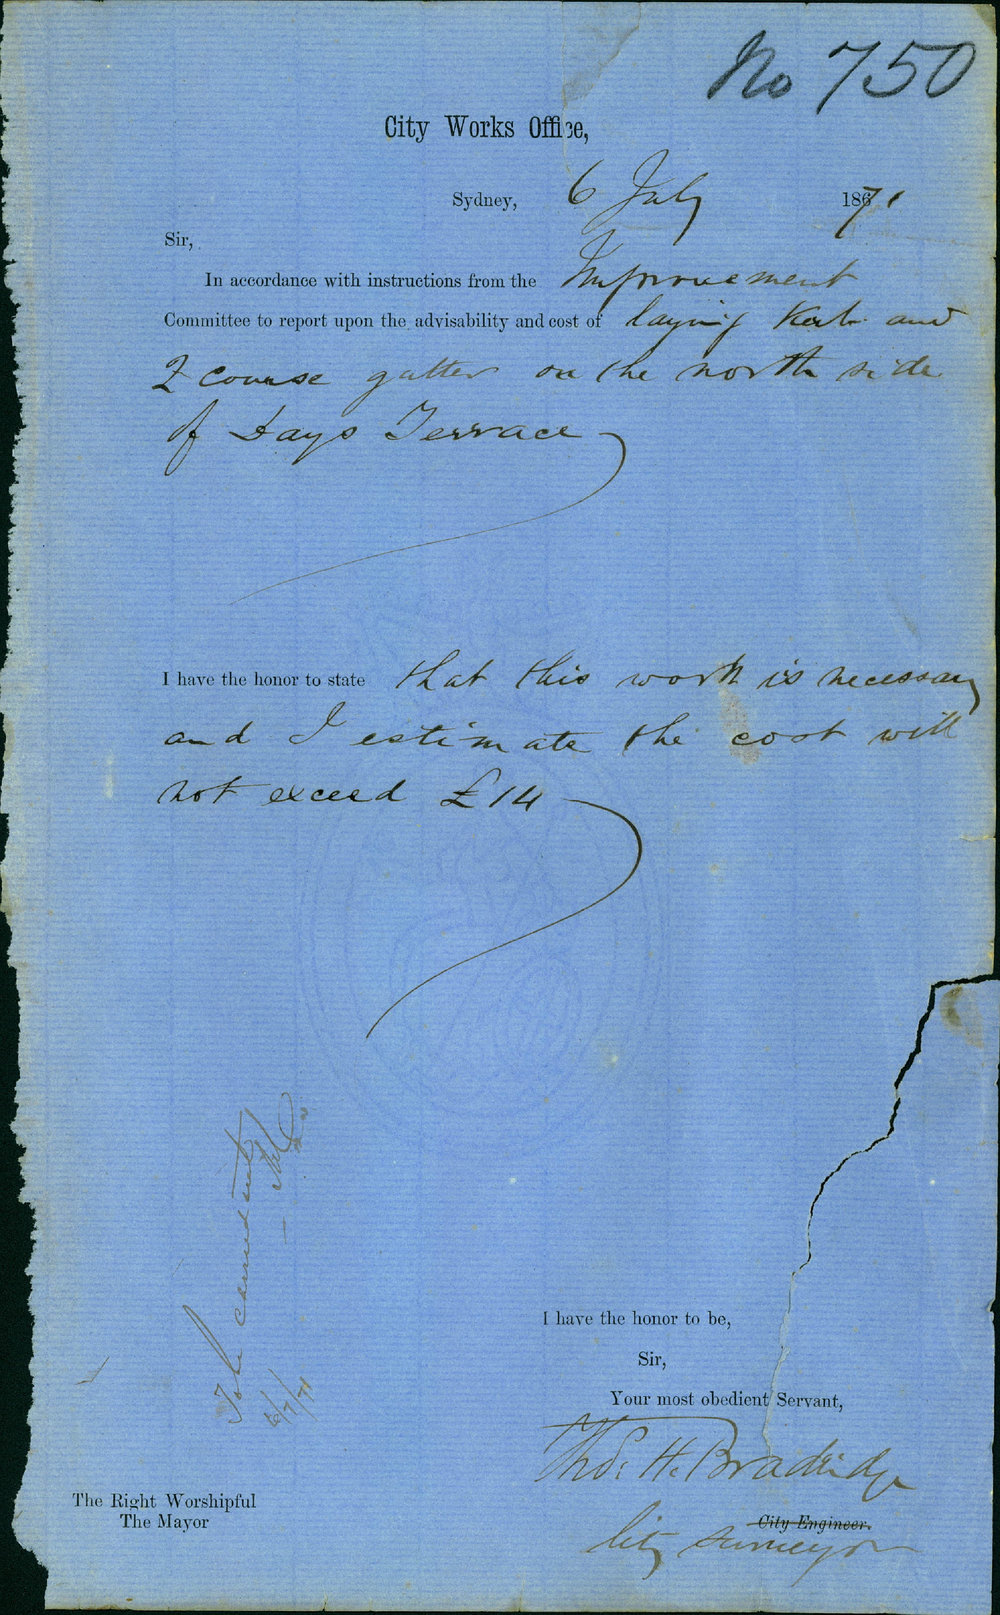 No 750
City Works Office,
Sydney, 6 July 1871
Sir,
In accordance with instructions from the Improvement
Committee to report upon the advisability and cost of laying Kerb and
2 course gutter on the north side
of Days Terrace
I have the honor to state that this work is necessary
and I estimate the cost will
not exceed £14
To be carried out
6/7/71
I have the honor to be,
Sir,
Your most obedient Servant,
Thos. H. Bradridge
City Engineer.
City Surveyor
The Right Worshipful
The Mayor